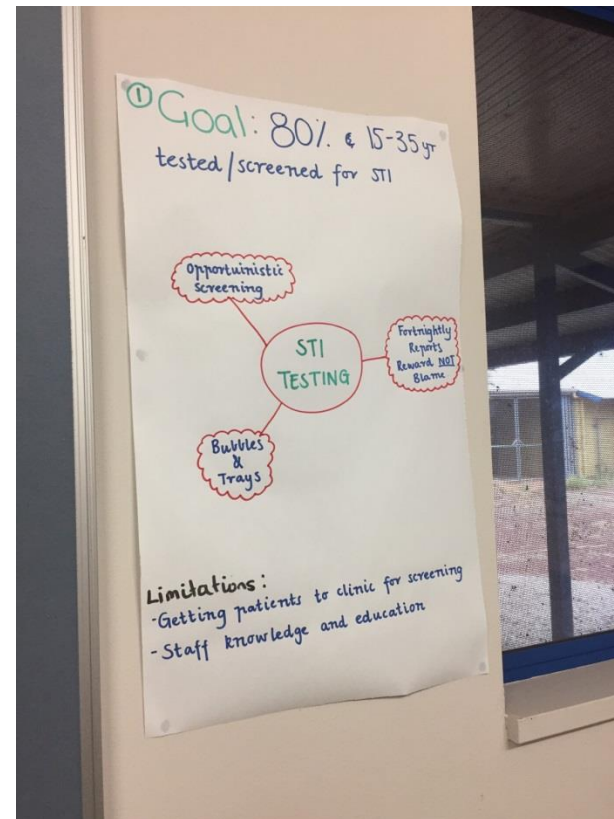 ① Goal: 80% & 15-35 yr
tested/screened for STI
Opportuinistic
screening
STI
TESTING
Fortnightly
Reports
Reward NOT
Blame
Bubbles
&
Trays
Limitations:
-Getting patients to clinic for screening
-Staff knowledge and education